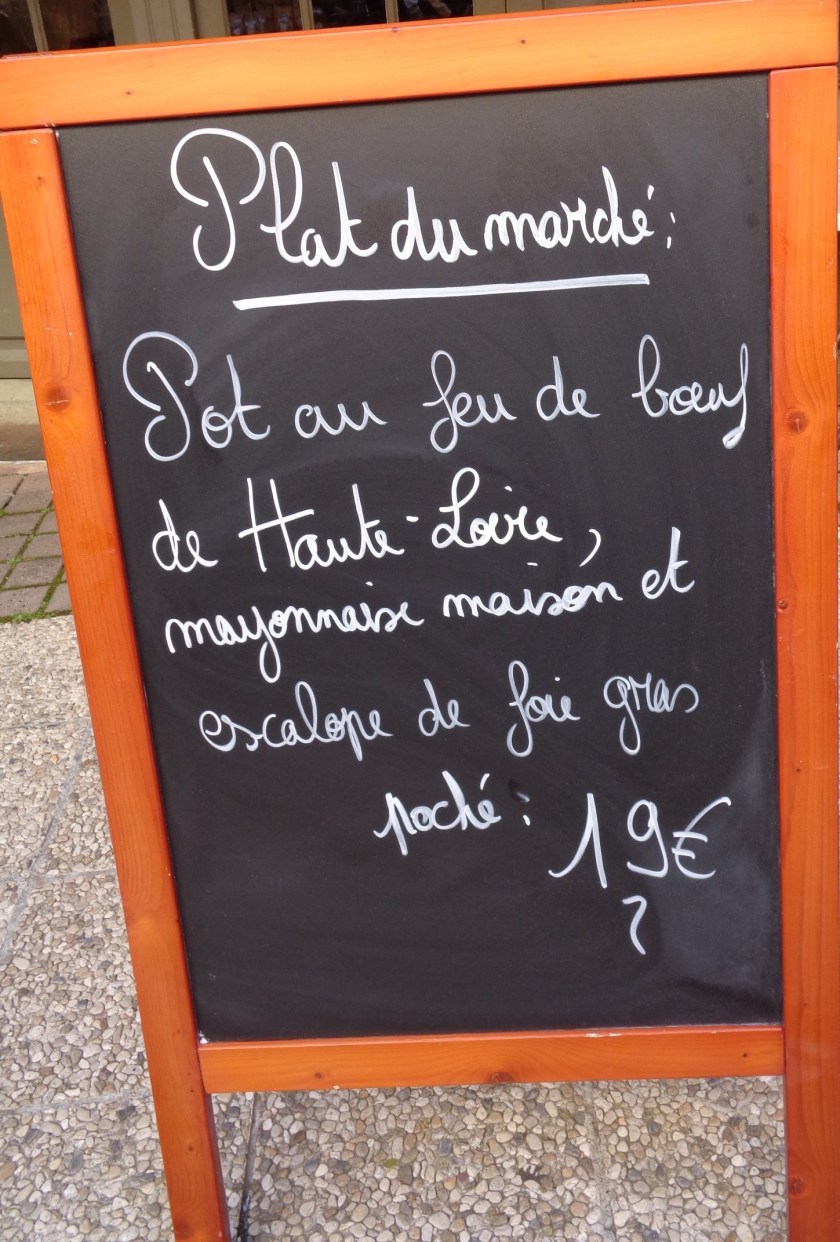 Plat du marché :
Pot au feu de bœuf
de Haute-Loire,
mayonnaise maison et
escalope de foie gras
poché : 19€
?